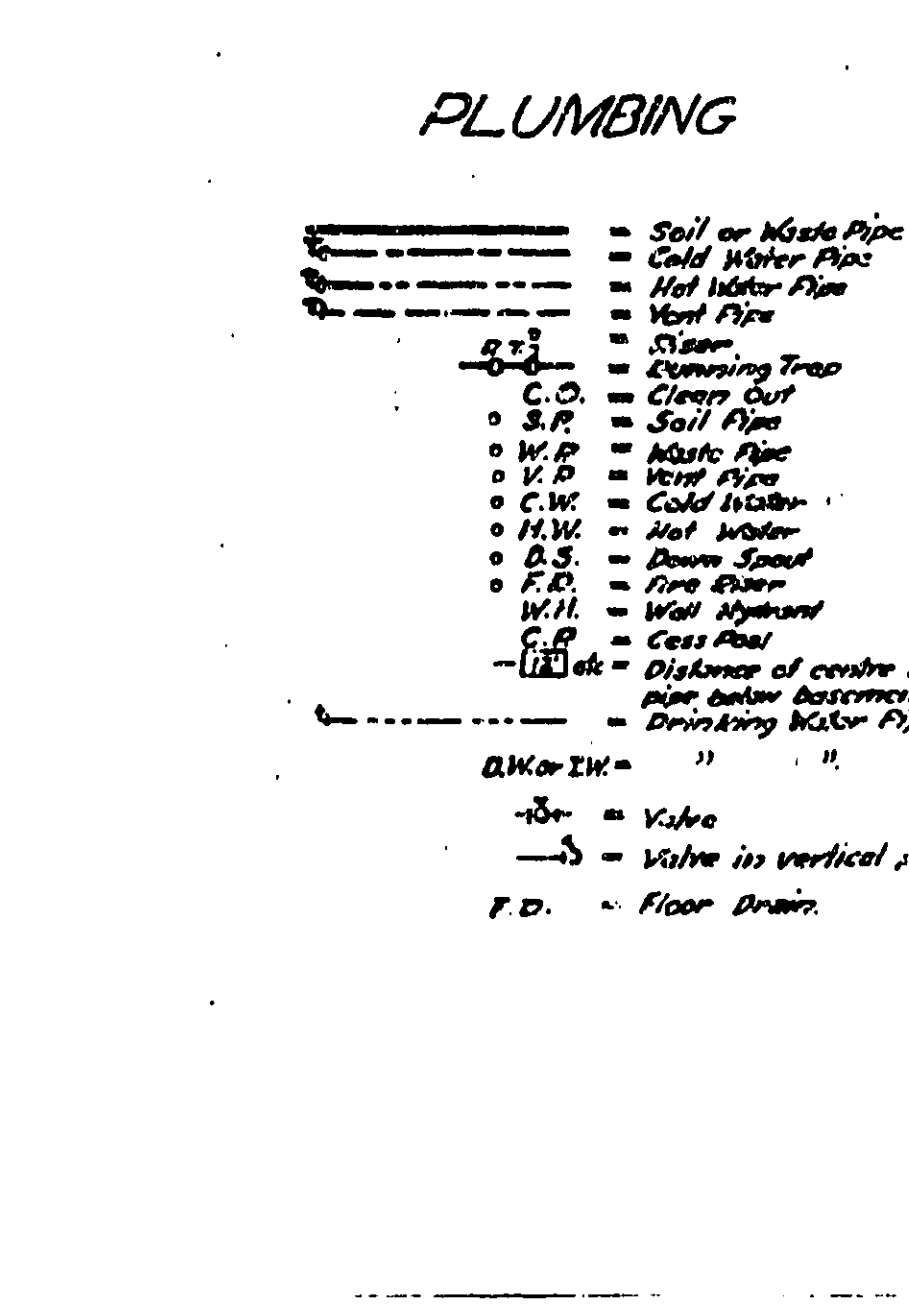 PLUMBING
= Soil or Waste Pipe
= Cold Water Pipe
= Hot Water Pipe
= Vent Pipe
= Riser
R.T. = Running Trap
C.O. = Clean Out
o S.P. = Soil Pipe
o W.P. = Waste Pipe
o V.P. = Vent Pipe
o C.W. = Cold Water
o H.W. = Hot Water
o D.S. = Down Spout
o F.R. = Fire Riser
W.H. = Wall Hydrant
C.P. = Cess Pool
12" etc = Distance of centre
pipe below basemen
= Drinking Water Pi
D.W. or I.W. = " "
= Valve
= Valve in vertical
F.D. = Floor Drain.